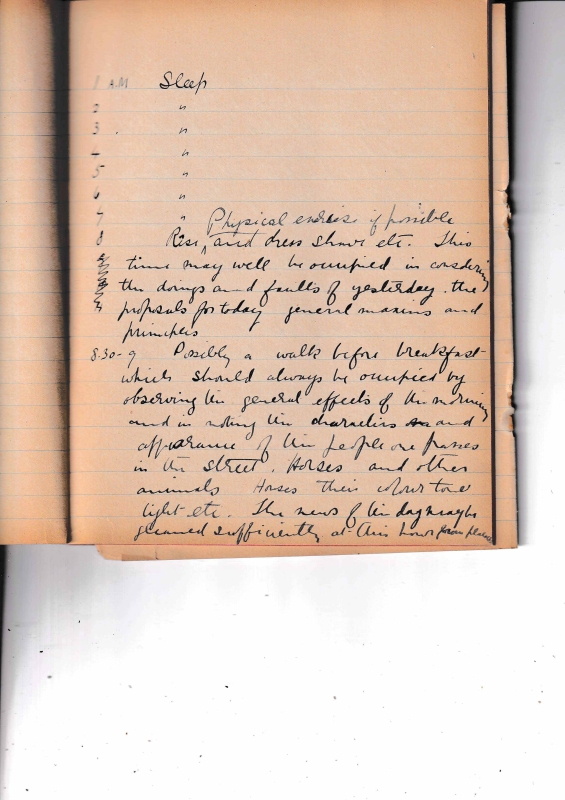 1 A.M Sleep
2 "
3 . "
4 "
5 "
6 "
7 " Physical exercise if possible
8 Rise, and dress shave etc. This
time may well be occupied in considering
the doings and faults of yesterday. the
proposals for today general maxims and
principles
8.30-9 Possibly a walk before breakfast
which should always be occupied by
observing the general effects of the morning
and in noting the characters and
appearance of the people one passes
in the street. Horses and other
animals Horses their colour tone
light etc. The news of the day may be
gleaned sufficiently at this hour from